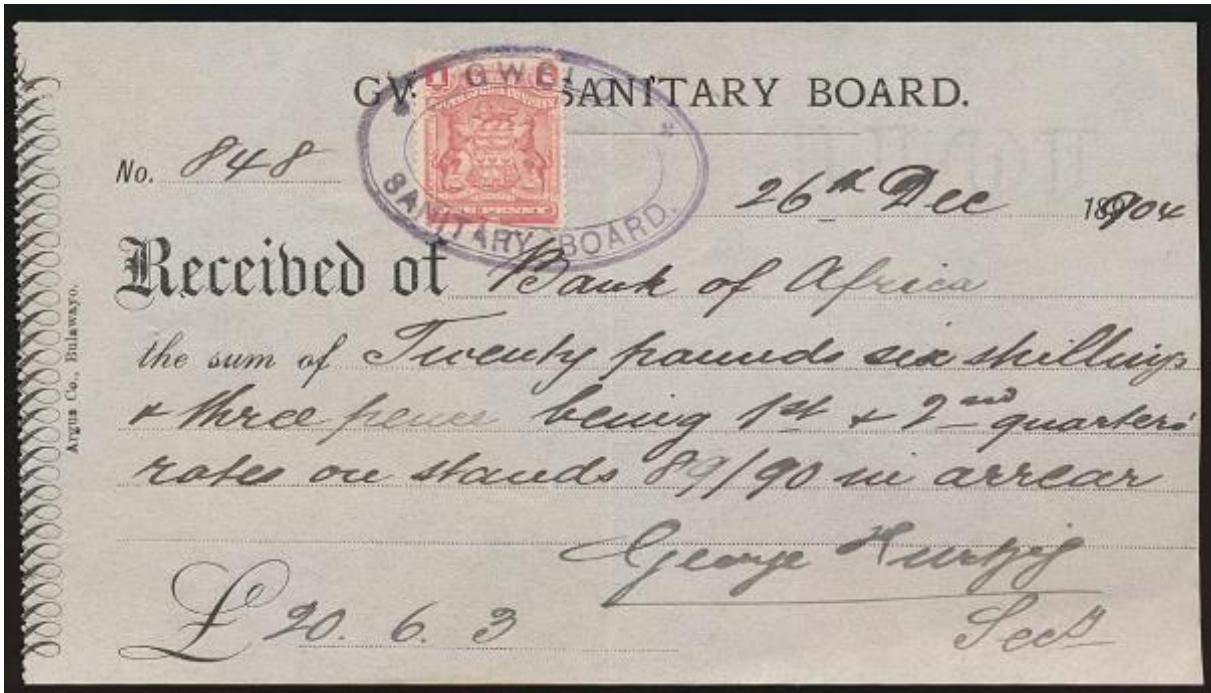 GWELO SANITARY BOARD.
GWELO SANITARY BOARD.
No. 848
26th Dec 1904
Received of Bank of Africa
the sum of Twenty pounds six shillings
& three pence being 1st & 2nd quarters'
rates on stands 89/90 in arrear
George
Secy
£ 20. 6. 3
Argus Co., Bulawayo.